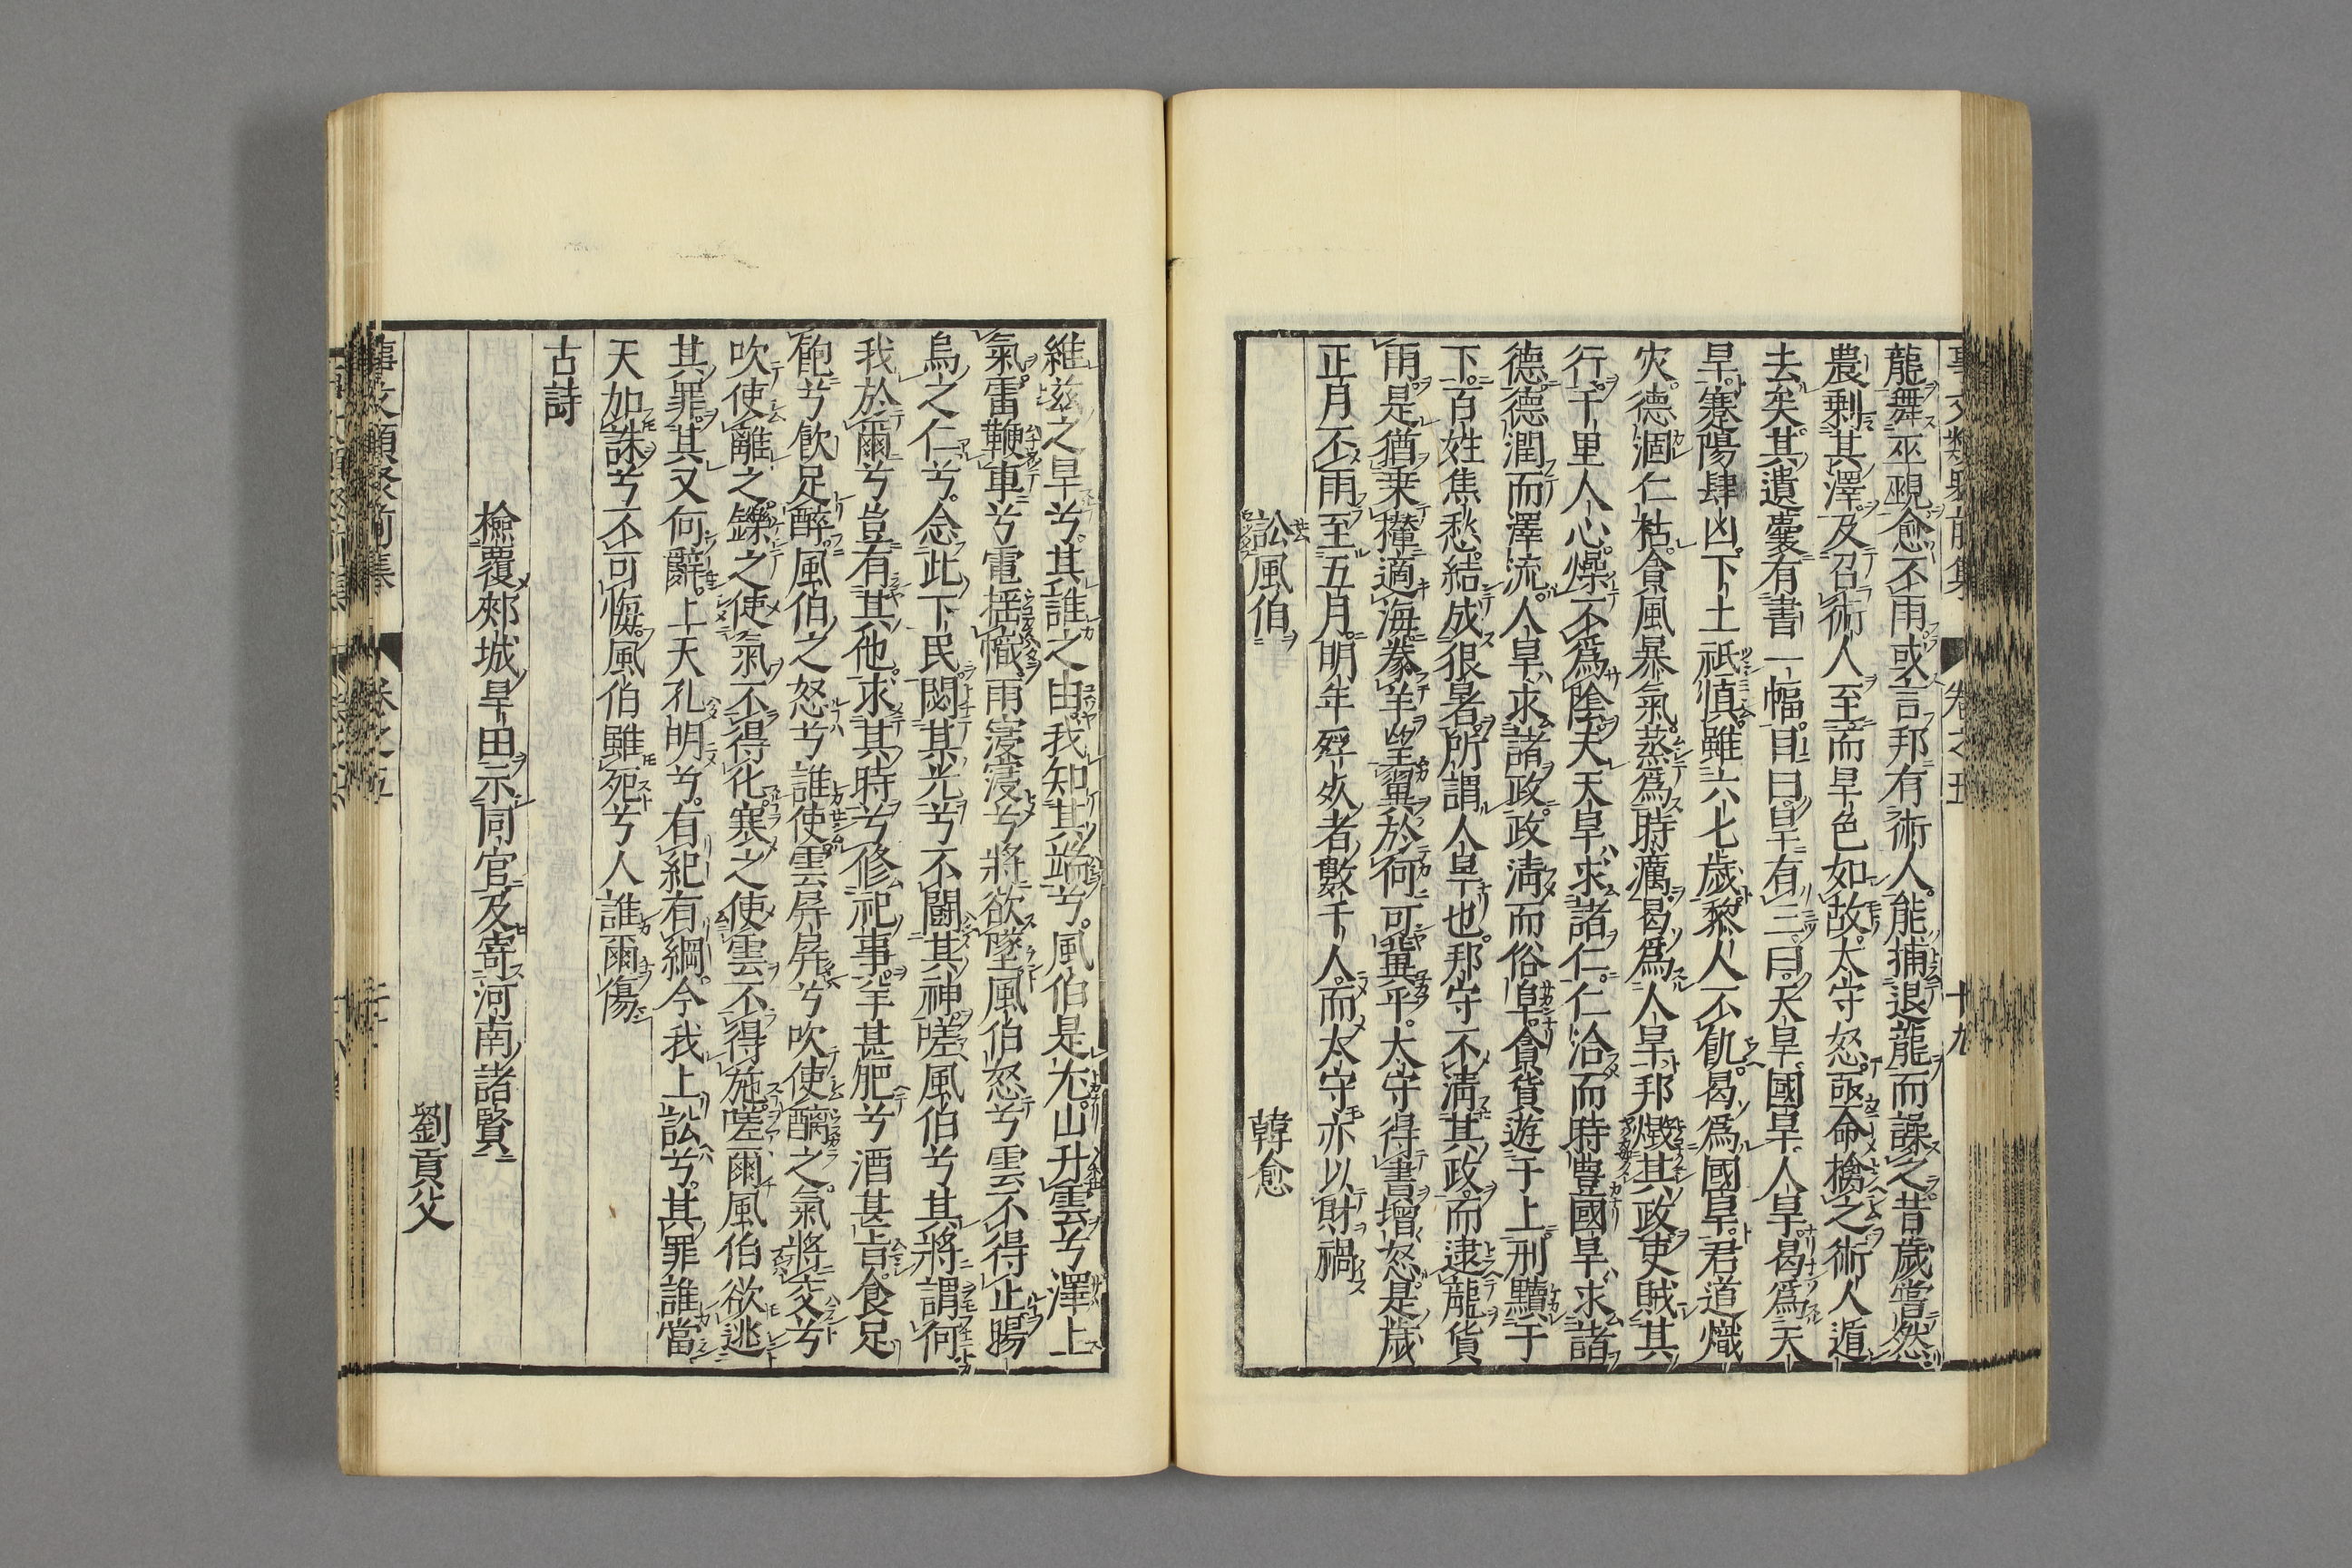 事文類聚前集　卷之五　十九
龍舞巫覡愈不雨或言邦有術人能捕退龍而譟之昔歲嘗然
農剰其澤及召術人至而旱色如故太守怒亟命擒之術人遁
去矣其遺橐有書一幅目曰旱有三曰天旱國旱人旱曷爲天
旱蹇陽肆凶下土祇慎雖六七歲黎人不飢曷爲國旱君道熾
灾德涸仁枯貪風暴氣蒸爲時癘曷爲人旱邦燬其政吏賊其
行千里人心燥不爲陰天天旱求諸仁仁洽而時豊國旱求諸
德德潤而澤流人旱求諸政政淸而俗阜貪貨遊于上刑黷于
下百姓焦愁結成很暑所謂人旱也邦守不淸其政而逮龍貨
雨是猶乗攡適海豢羊望翼於何可冀乎太守得書增怒是歲
正月不雨至五月明年殍死者數千人而太守亦以財禍
訟風伯　韓愈
維玆之旱兮其誰之由我知其端兮風伯是尤山升雲兮澤上
氣雷鞭車兮電揺幟雨寖寖兮將欲墜風伯怒兮雲不得止暘
烏之仁兮念此下民閟其光兮不鬭其神嗟風伯兮其將謂何
我於爾兮豈有其他求其時兮修祀事羊甚肥兮酒甚旨食足
飽兮飮足醉風伯之怒兮誰使雲屏屏兮吹使醨之氣將交兮
吹使離之鑠之使氣不得化寒之使雲不得施嗟爾風伯欲逃
其罪其又何辭上天孔明兮有紀有綱今我上訟兮其罪誰當
天加誅兮不可悔風伯雖死兮人誰爾傷
古詩
檢覆郟城旱田示同官及寄河南諸賢
劉貢父
事文類聚前集　卷之五